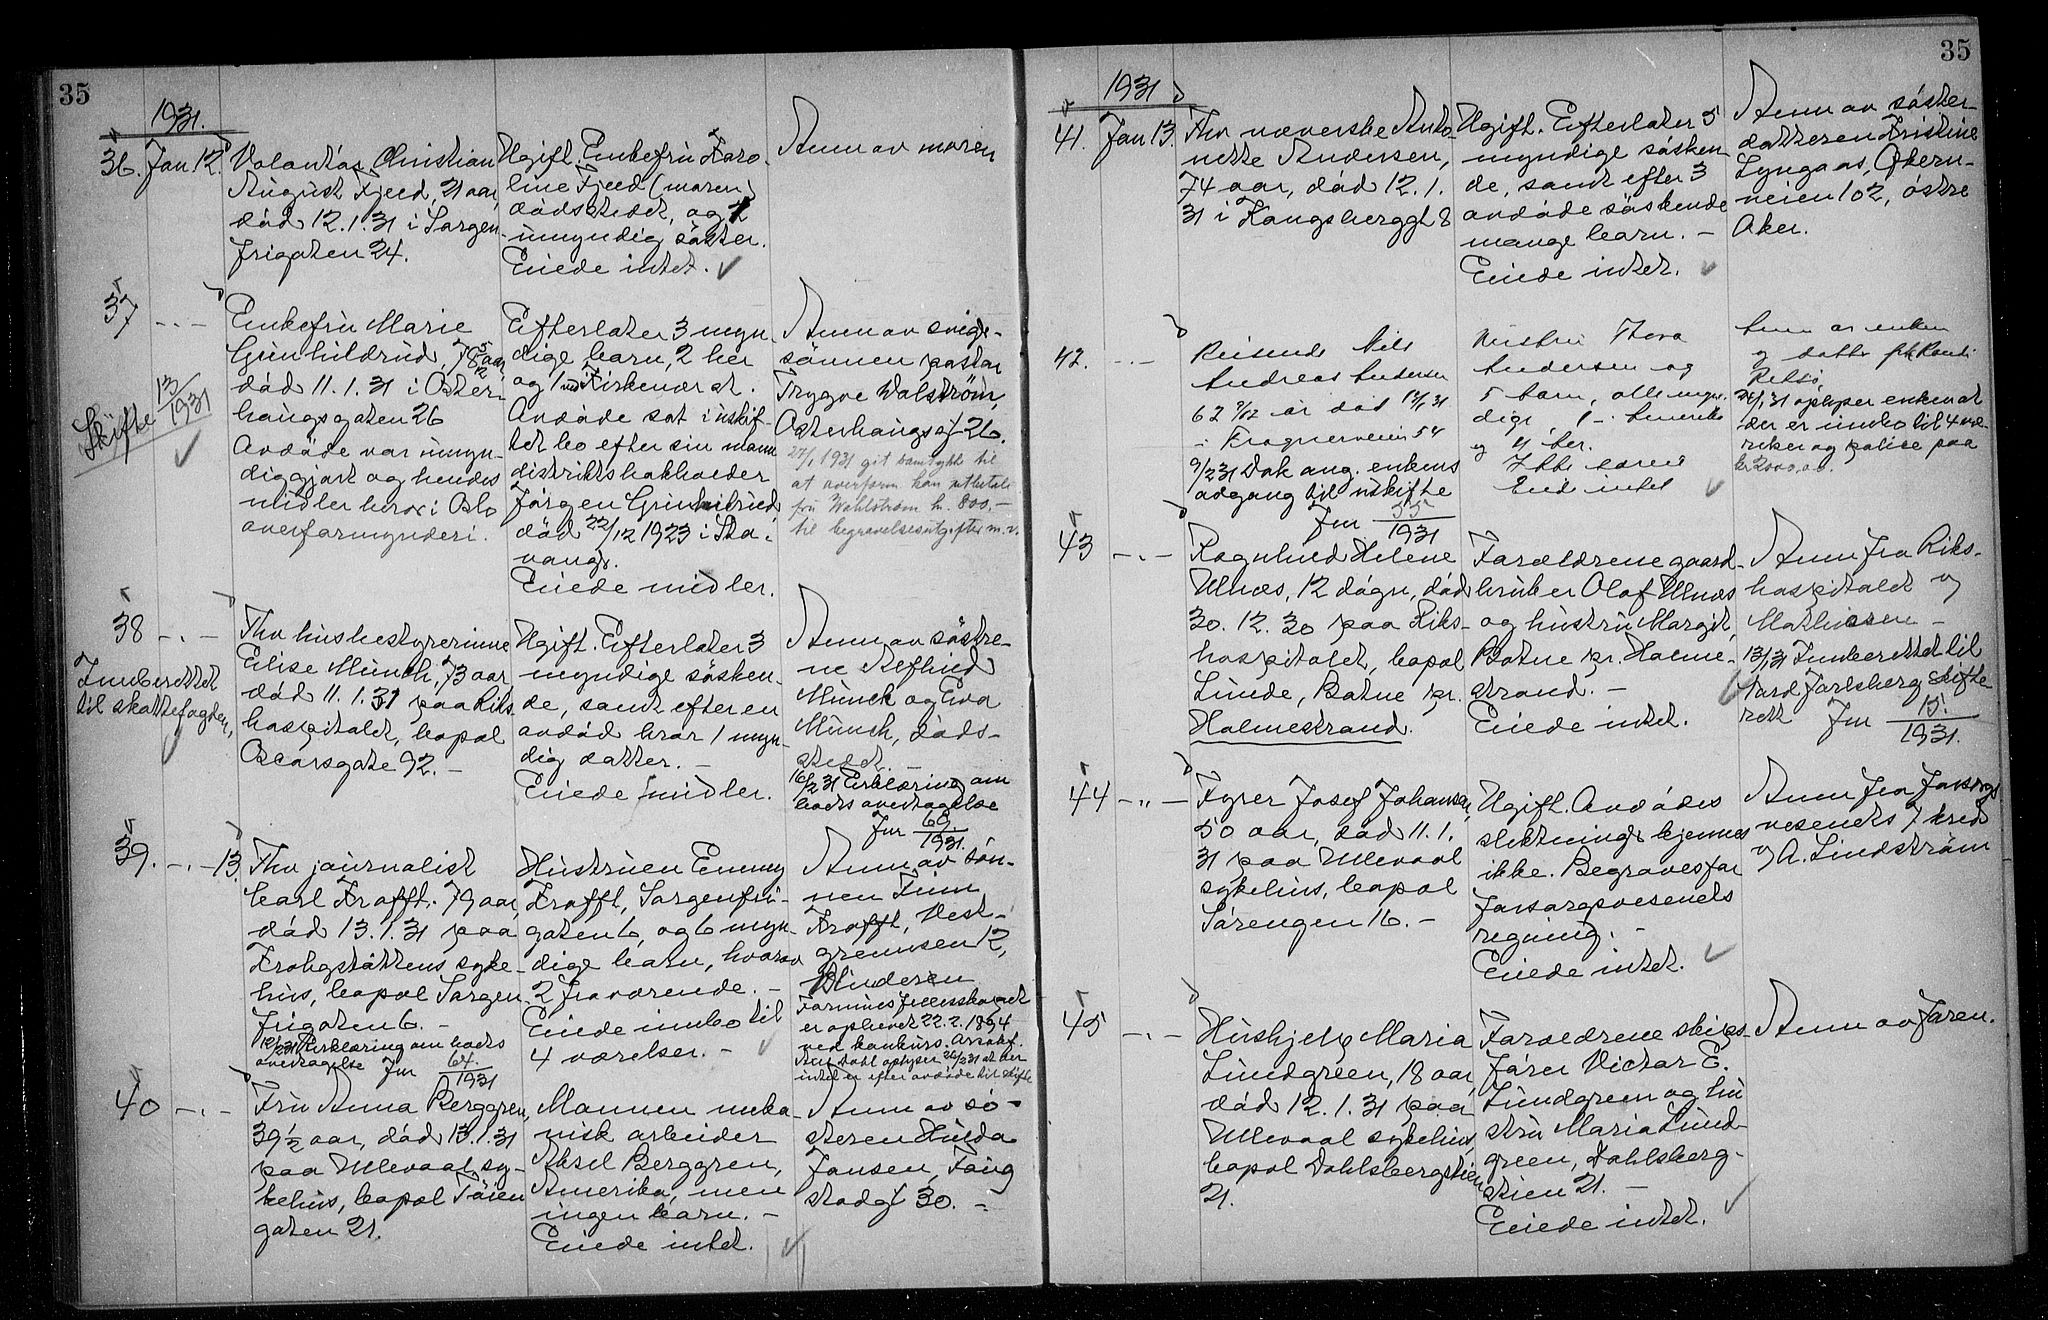 35
1931.
36. Jan 12. Volontör Christian
August Fjeld, 21 aar,
död 12.1.31 i Sorgen-
frigaten 24.
Ugift. Enkefru Karo-
line Fjeld (moren)
dödsstedet, og 1
umyndig söster.
Eiede intet.
Anm av moren
37 -.-
Skifte 13/1931
Enkefru Marie
Gunhildrud, 78 5/12 aar
död 11.1.31 i Öster-
haugsgaten 26
Avdöde var umyn-
diggjort og hendes
midler beror i Oslo
overformynderi.
Efterlater 3 myn-
dige barn, 2 her
og 1 ved Fiskenær at.
Avdöde sat i uskif-
tet bo efter sin mann
distriktslakholder
Jörgen Gunhildrud
död 22/12 1923 i Sta-
vanger.
Eiede midler.
Anm av svige-
sönnen pastor
Trygve Wolström,
Österhaugsgt 26.
27/1 1931 git samtykke til
at overform kan utbetale
fru Wahlström kr. 800,-
til begravelsesutgifter m.v.
38 -.-
Innberettet
til skattefogden,
Fhv husbestyrerinne
Elise Münch, 73 aar
död 11.1.31 paa Riks-
hospitalet, bopæl
Oscarsgate 92.-
Ugift. Efterlater 3
myndige sösken-
de, samt efter en
avdöd bror 1 myn-
dig datter.-
Eiede midler.
Anm av söstre-
ne Ref
Münch og Eva
Münch, döds-
stedet.-
16/2 31 Erklæring om
boets overtagelse
Jnr 68./1931.
39. -.- 13.
Fhv journalist
Carl Krafft. 79 aar,
död 13.1.31 paa
Krohgstöttens syke-
hus, bopæl Sorgen-
frigaten 6.-
12/2 31 Erklæring om boets
overtagelse Jnr 64./1931
Hustruen Emmy
Krafft, Sorgenfri-
gaten 6, og 6 myn-
dige barn, hvorav
2 fraværende.-
Eiede innbo til
4 værelser.-
Anm av sön-
nen Finn
Krafft, Vest-
gremsen 12,
Blinderen
Formuesfellesskapet
er ophevet 22.2.1894
ved konkurs. O.r.sakf.
Dahl oplyser 26/2 31 at der
intet er efter avdöde til skifte
40 -.-
Fru Anna Berggren,
39½ aar, död 13.1.31
paa Ullevaal sy-
kehus, bopæl Töien-
gaten 21.
Mannen meka-
nisk arbeider
Aksel Berggren,
Amerika, men
ingen barn.-
Eiede intet.
Anm av sö-
steren Hulda
Jansen, Taug
stadgt 30.-
35
1931
41. Jan 13. Fhv væverske Anto-
nette Andersen,
74 aar, död 12.1.
31 i Kongsberggt 8
Ugift. Efterlater 5
myndige sösken-
de, samt efter 3
avdöde söskende
mange barn.-
Eiede intet.
Anm av söster-
datteren Kristine
Lyngaas, Økern-
veien 102, östre
Aker.
42. -.-
Reisende Nils
Andreas Andersen
62 9/12 år død 13/1 31
i Frognerveien 54
9/2 31 Dok ang. enkens
adgang til uskifte
Jnr 55/1931
Hustru Thora
Andersen og
5 barn, alle myn-
dige, 1 i Amerika
og 4 her.
Ikke særeie
Eied intet
Anm av enken
og datter frk Randi
24/1 31 oplyser enken at
der er innbo til 4 væ-
relser og polise paa
kr 2000,00.
43 -.-
Ragnhild Helene
Ulnæs, 12 dögn, död
30.12.30 paa Riks-
hospitalet, bopæl
Lunde, Botne pr.
Holmestrand.
Forældrene gaard-
bruker Olaf Ulnæs
og hustru Margit,
Botne pr. Holme-
strand.-
Eiede intet.
Anm fra Riks-
hospitalet og
Mathissen-
13/1 31 Innberettet til
Nord Jarlsberg skifte-
rett Jnr 15./1931.
44 -„-
Fyrer Josef Johansen,
50 aar, död 11.1.
31 paa Ullevaal
sykehus, bopæl
Sörengen 16.-
Ugift. Avdödes
slektninger kjennes
ikke. Begraves for
forsorgsvesenets
regning.-
Eiede intet.
Anm fra Forsorgs
vesenets 7 kreds
og A. Lindström
45 -.-
Hushjelp Maria
Lundgreen, 18 aar,
död 12.1.31 paa
Ullevaal sykehus,
bopæl Dahlsbergstien
21.
Forældrene skips-
förer Victor E.
Lundgreen og hu-
stru Maria Lund-
green, Dahlsberg-
stien 21.-
Eiede intet.
Anm av faren.